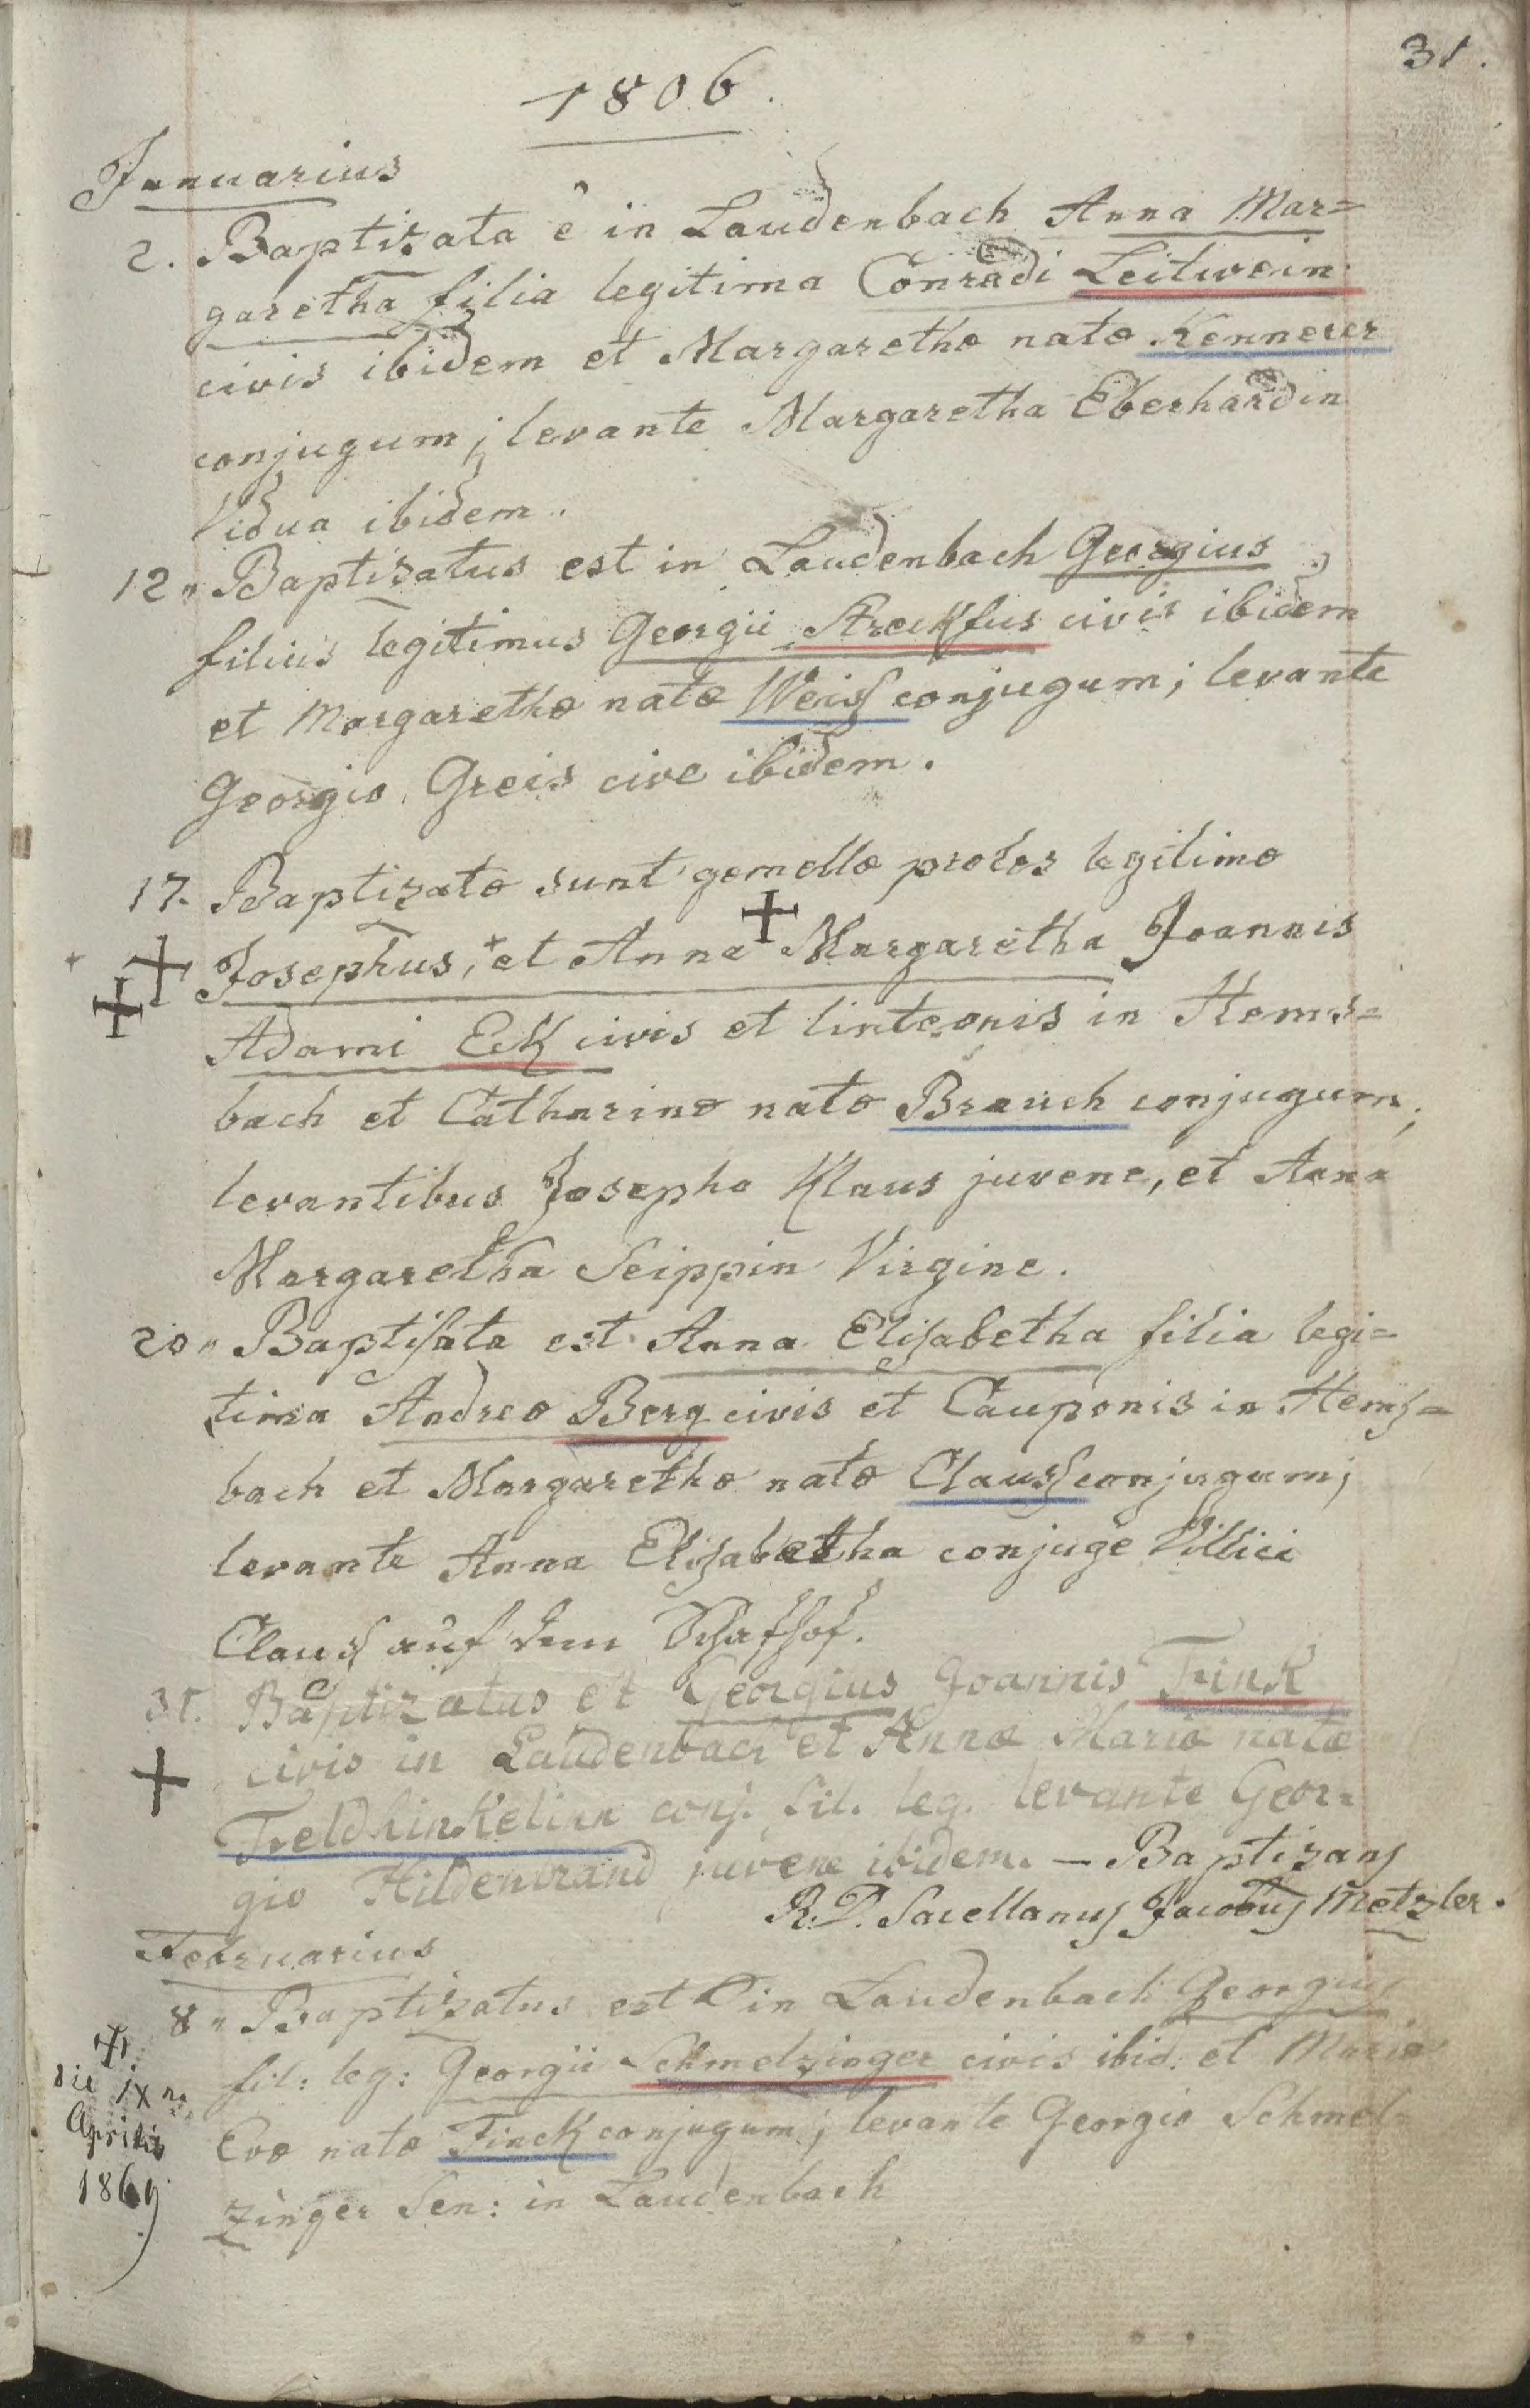 31.
1806.
Januarius
2. Baptizata ê in Laudenbach Anna Mar=
garetha filia legitima Conradi Leitwein
civis ibidem et Margarethæ natæ Kennerer
conjugum; levante Margaretha Eberhardin
Vidua ibidem.
12. Baptizatus est in Laudenbach Georgius
filius legitimus Georgii Streckfus civis ibidem
et Margarethæ natæ Weiss conjugum; levante
Georgio Greis cive ibidem.
17. Baptizatæ sunt gemellæ proles legitimæ
Josephus, et Anna Margaretha Joannis
Adami Eck civis et linteonis in Hems=
bach et Catharinæ natæ Brauch conjugum;
levantibus Josepho Klaus juvene, et Anna
Margaretha Seippin Virgine.
20. Baptisata est Anna Elisabetha filia legi=
tima Andreæ Berg civis et Cauponis in Hems=
bach et Margarethæ natæ Clauss conjugum;
levante Anna Elisabetha conjuge Villici
Clauss auf dem Schafhof.
31. Baptizatus et Georgius Joannis Fink
civis in Laudenbach et Annæ Mariæ natæ
Feldhinkelinn conj. fil. leg. levante Geor=
gio Hildenbrand juvene ibidem. — Baptizans
R. D. Sacellanus Jacobus Metzler.
Februarius
8. Baptizatus est in Laudenbach Georgius
fil: leg: Georgii Schmelzinger civis ibid: et Mariæ
Evæ natæ Finck conjugum; levante Georgio Schmel=
zinger Sen: in Laudenbach
die IX na
Aprilis
1869